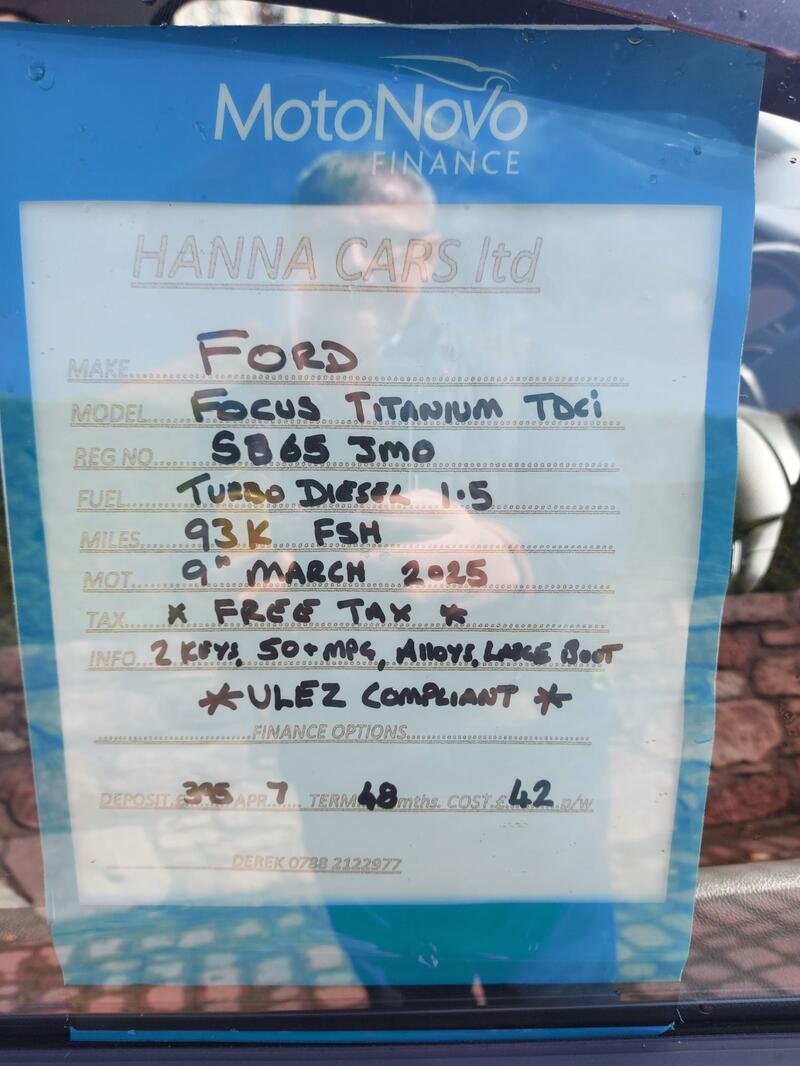 MotoNovo
FINANCE
HANNA CARS ltd
MAKE..... FORD
MODEL..... FOCUS TITANIUM TDCi
REG NO..... SB65 JMO
FUEL..... TURBO DIESEL 1.5
MILES..... 93K FSH
MOT..... 9" MARCH 2025
TAX..... * FREE TAX *
INFO... 2 KEYS, 50+ MPG, ALLOYS, LARGE BOOT
*ULEZ COMPLIANT *
FINANCE OPTIONS
DEPOSIT.£ 395 APR. 7 TERM 48 mths. COST.£ 42 p/w
DEREK 0788 2122977